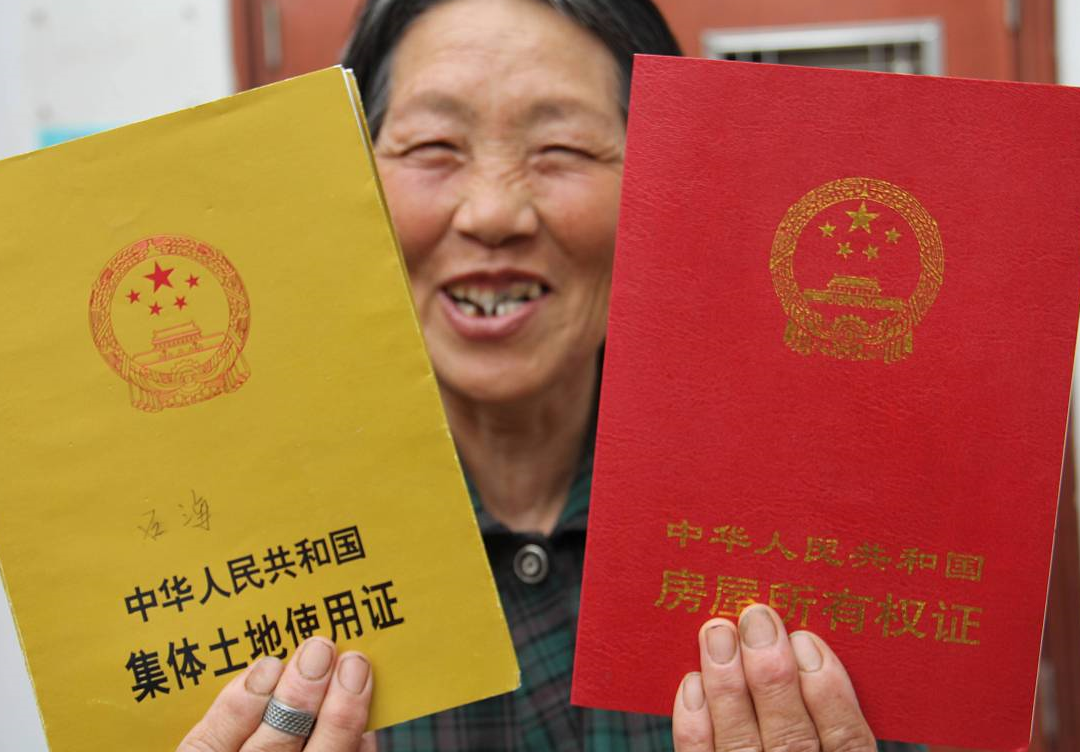 中华人民共和国
集体土地使用证
中华人民共和国
房屋所有权证